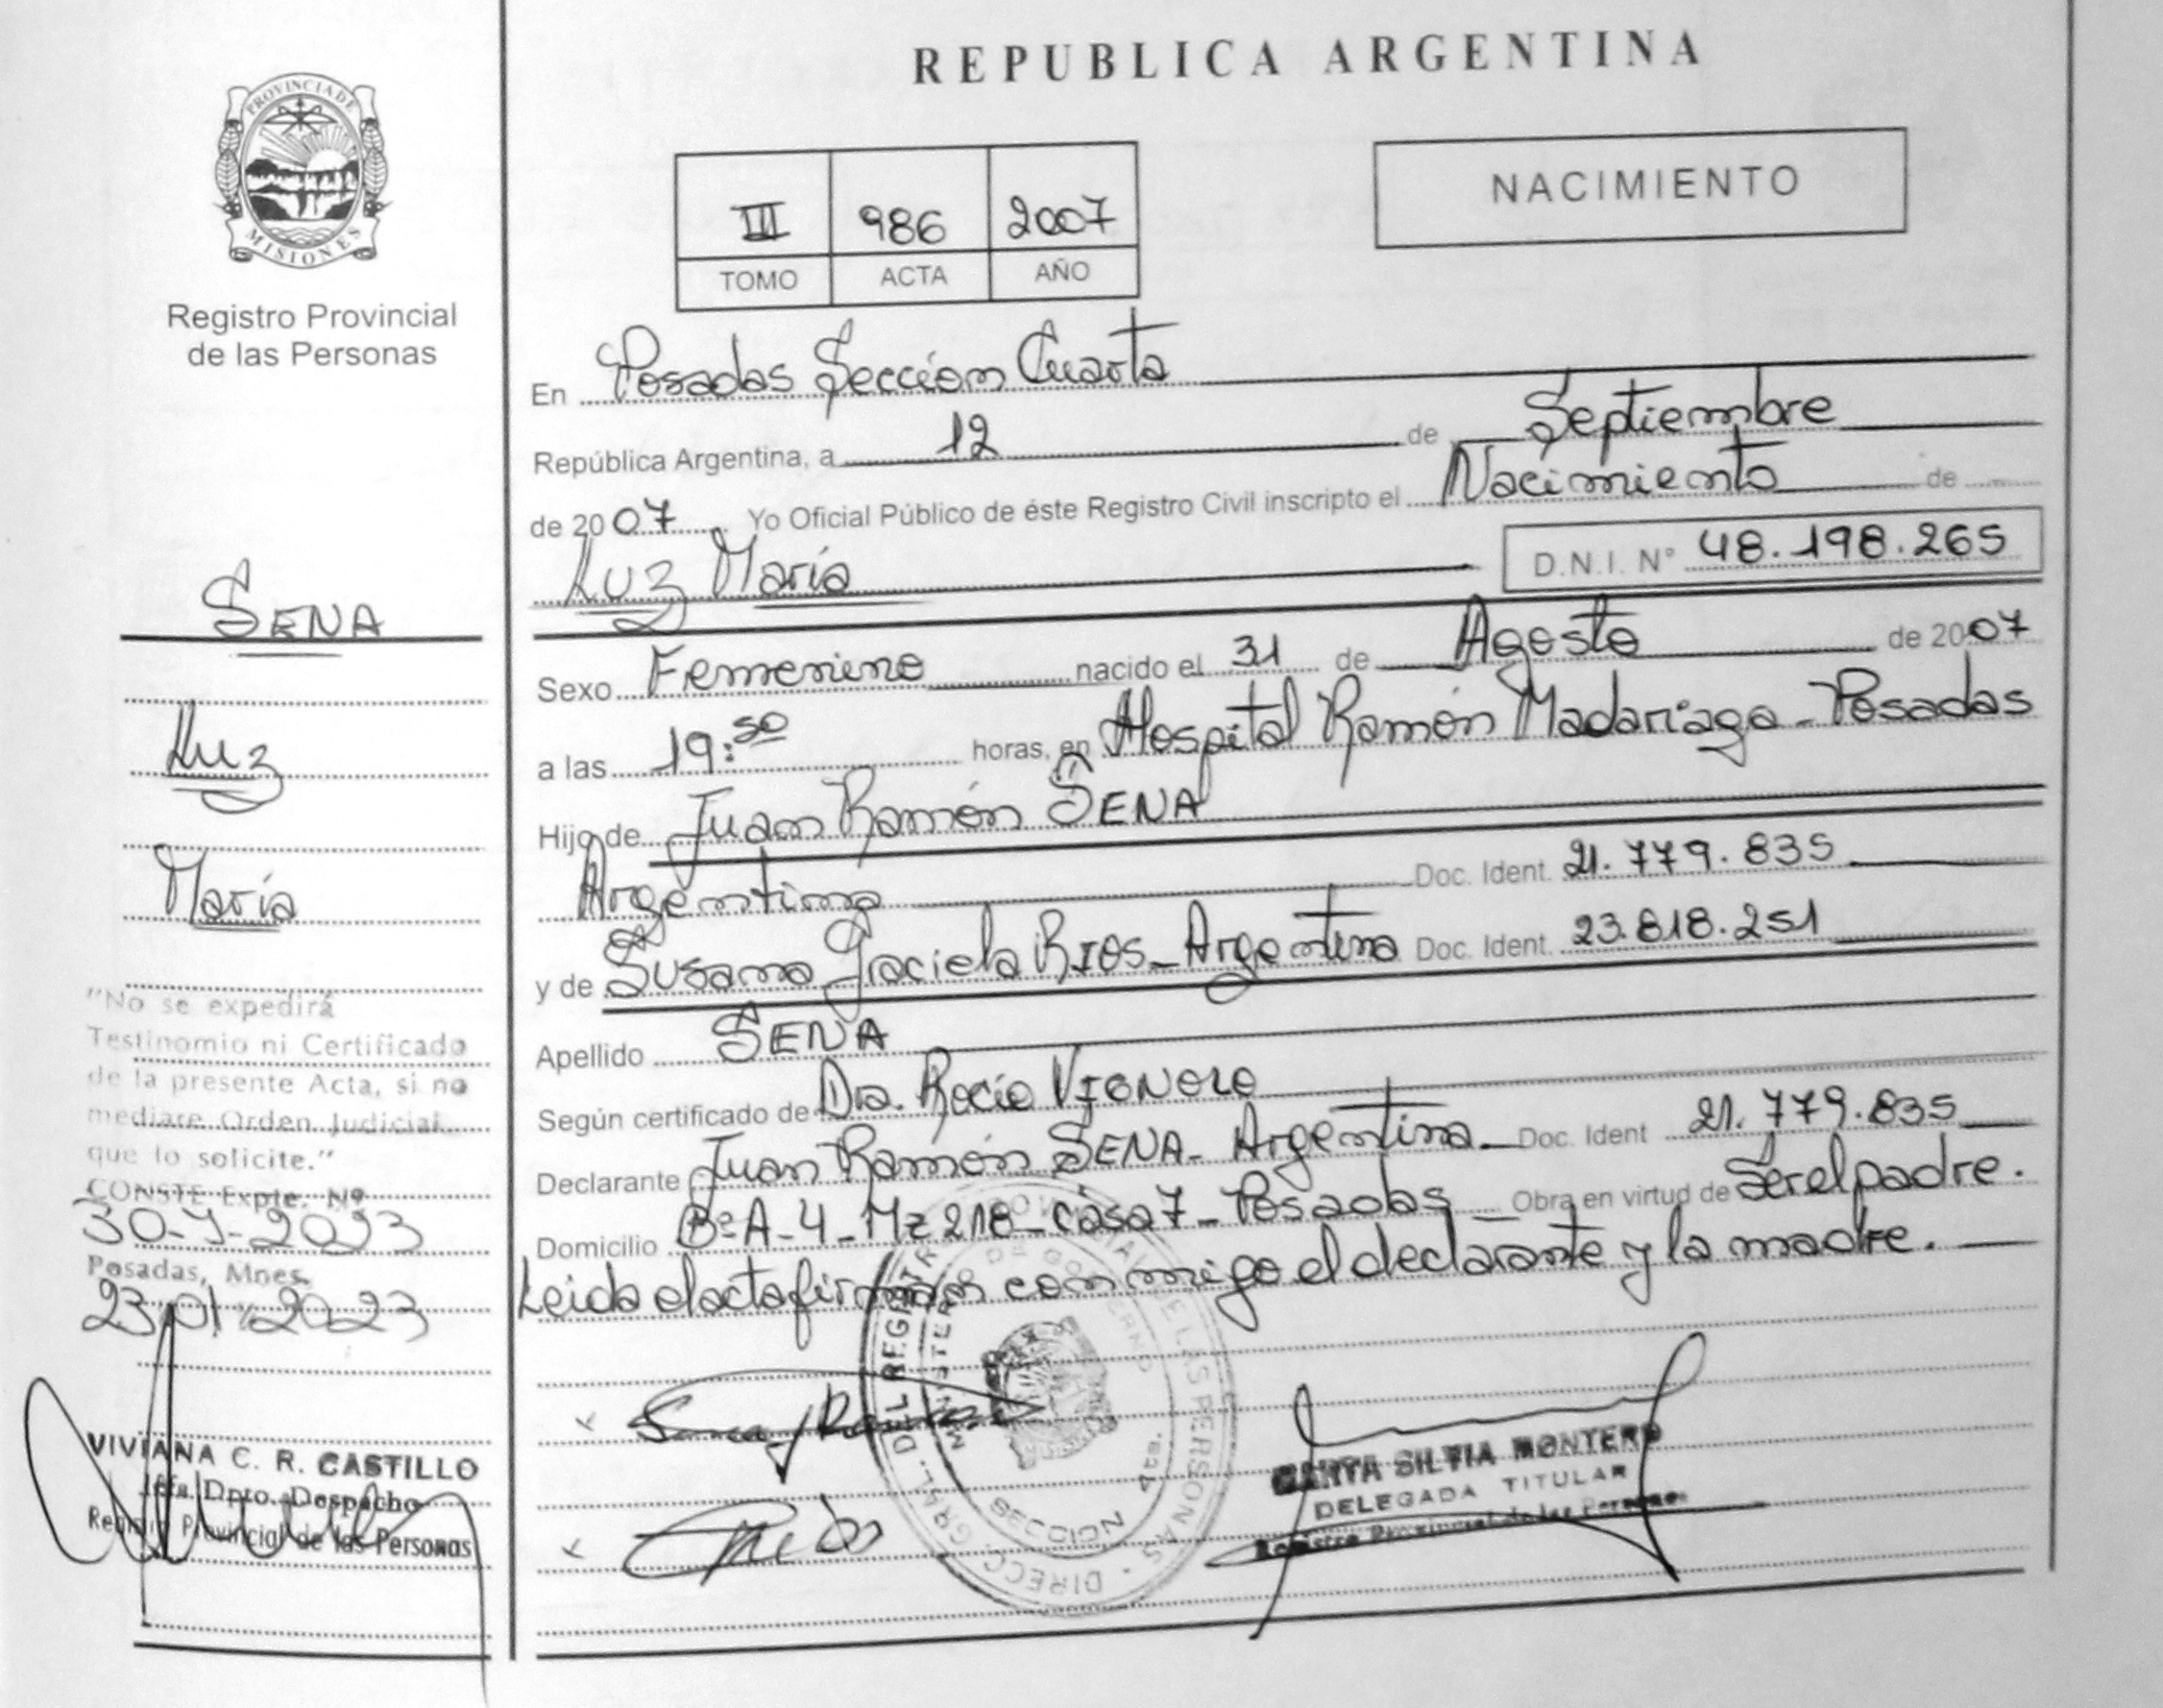 REPUBLICA ARGENTINA
PROVINCIA DE
MISIONES
Registro Provincial
de las Personas
III 986 2007
TOMO ACTA AÑO
NACIMIENTO
En Posadas Sección Cuarta
República Argentina, a 12 de Septiembre
de 2007 Yo Oficial Público de éste Registro Civil inscripto el Nacimiento de
Luz María D.N.I. Nº 48.198.265
Sexo Femenino nacido el 31 de Agosto de 2007
a las 19:50 horas, en Hospital Ramón Madariaga - Posadas
Hijo de Juan Ramón SENA
Argentino Doc. Ident. 21.779.835
y de Susana Graciela RIOS - Argentina Doc. Ident. 23.818.251
Apellido SENA
Según certificado de Dra. Rocío
Declarante Juan Ramón SENA - Argentina Doc. Ident 21.779.835
Domicilio Bº A-4 - Mz 218 - Casa 7 - Posadas Obra en virtud de Ser el padre.
Leida el acta firman conmigo el declarante y la madre.
SENA
Luz
María
"No se expedirá
Testinomio ni Certificado
de la presente Acta, si no
mediare Orden Judicial
que lo solicite."
CONSTE Expte. Nº
Posadas, Mnes.
VIVIANA C. R. CASTILLO
Jefa Dpto. Despacho
Registro Provincial de las Personas
DIRECC. GRAL. DEL REGISTRO PROVINCIAL DE LAS PERSONAS
MINISTERIO DE GOBIERNO
SECCION 4ta.
SILVIA MONTERO
DELEGADA TITULAR
Registro Provincial de las Personas